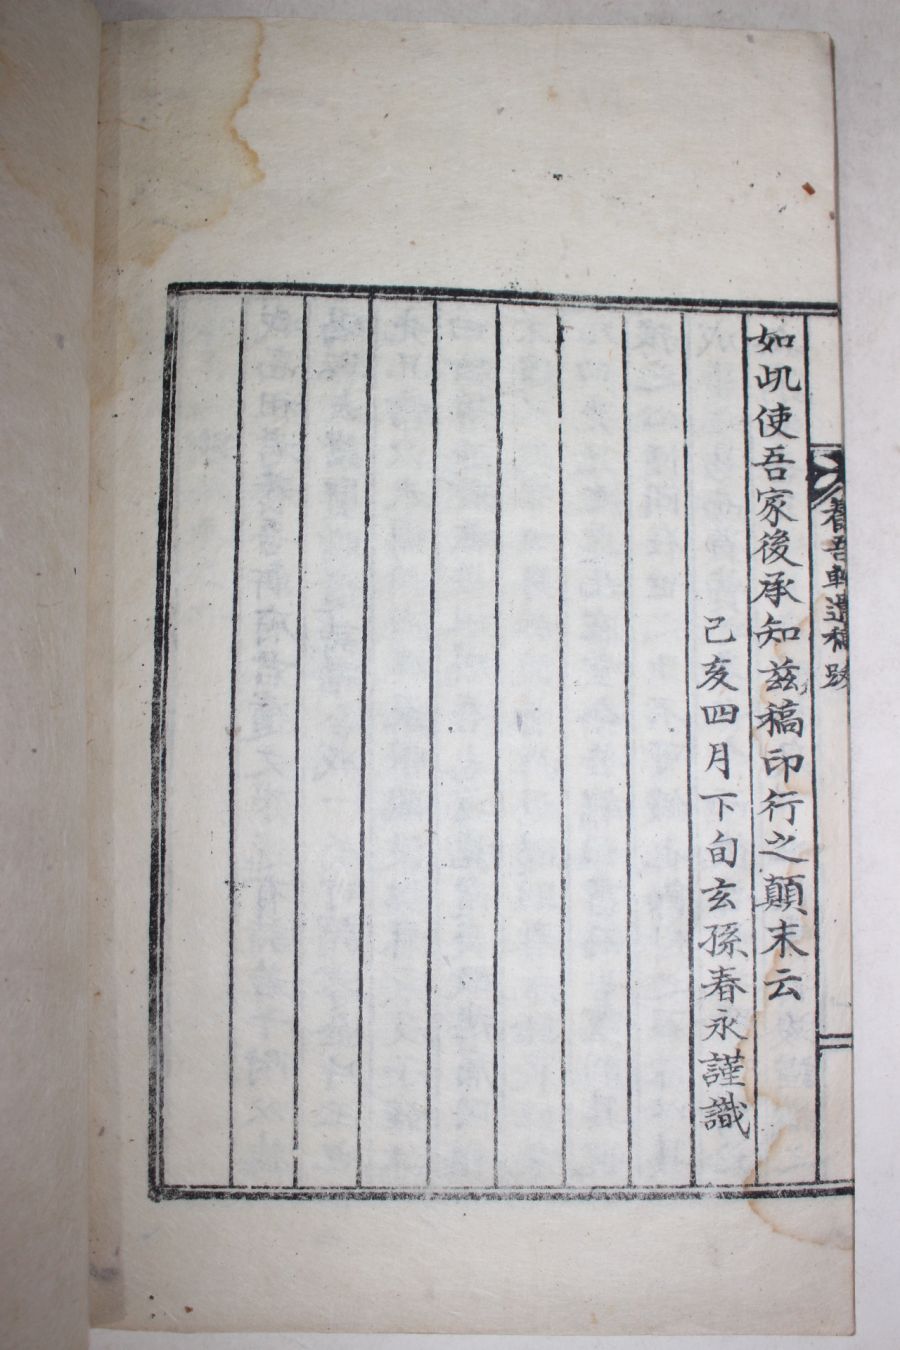 如此使吾家後承知玆稿印行之顛末云
己亥四月下旬玄孫春永謹識
養吾軒遺稿 跋